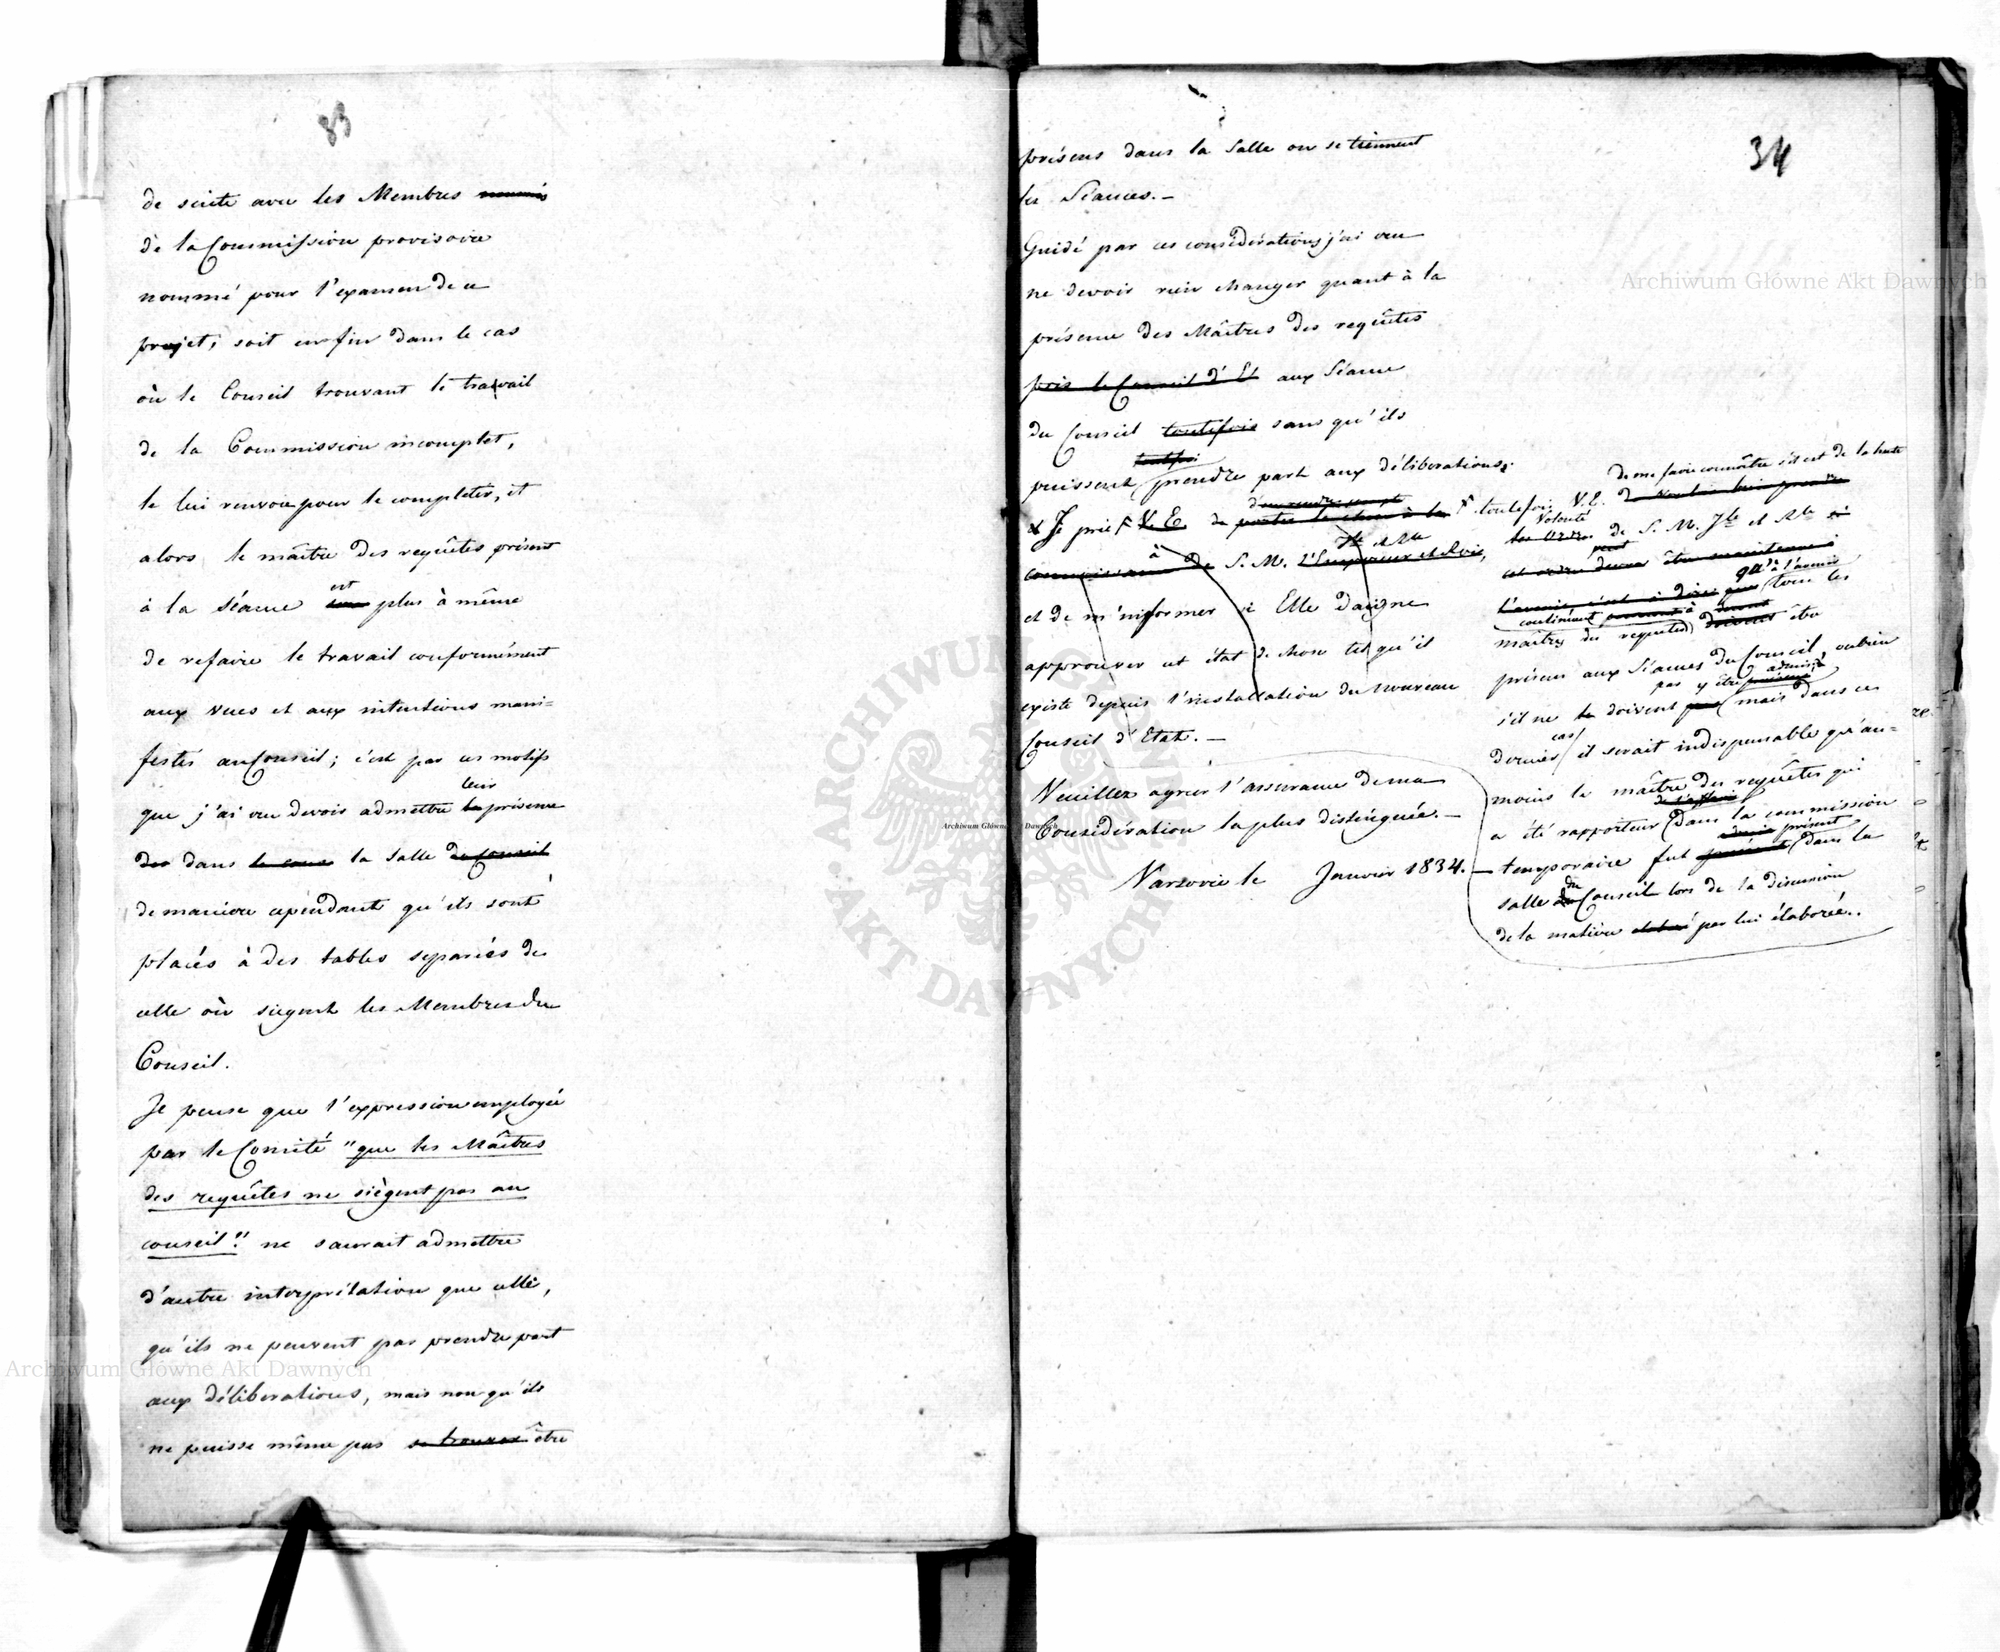 33
de suite avec les Membres nommés
de la Commission provisoire
nommé pour l'examen de ce
projet; soit enfin dans le cas
où le Conseil trouvant le travail
de la Commission incomplet,
le lui renvoie pour le completer, et
alors le maître des requêtes présent
à la séance est plus à même
de refaire le travail conformément
aux vues et aux intentions mani=
festés au Conseil; c'est par ces motifs
que j'ai cru devoir admettre leur présence
dans la Salle du Conseil
de maniere cependant qu'ils sont
placés à des tables separées de
celle où siegent les Membres du
Conseil.
Je pense que l'expression employée
par le Comité "que les Maîtres
des requêtes ne siègent pas au
conseil" ne saurait admettre
d'autre interprétation que celle,
qu'ils ne peuvent pas prendre part
aux déliberations, mais non qu'ils
ne puisse même pas se trouver être
34
présens dans la Salle ou se tiennent
les Séances.-
Guidé par ces considérations j'ai cru
ne devoir rien changer quant à la
présence des Maîtres des requêtes
près le Conseil d'Et aux Séance
du Conseil toutefois sans qu'ils
toutefoi
puissent prendre part aux déliberations.
d'en rendre compte
Je prie V. E. de porter la chose à la
Ile et Rle
à
connaissance de S. M. l'Empereur et Roi,
et de m'informer si Elle daigne
approuver cet état de chose tel qu'il
existe depuis l'installation du nouveau
Conseil d'Etat.-
Veuillez agréer l'assurance de ma
Considération la plus distinguée.-
Varsovie le Janvier 1834.-
de me faire connaître s'il est de la haute
toutefoi V. E. de vouloir bien prendre
Volonté
les ordres de S. M. Ile et Rle si
cet ordre devra être maintenu à
qu'à l'avenir
l'avenir c'est à dire que tous les
continuent à
maîtres des requêtes doivent être
présens aux Séances du Conseil, oubien
pas y être admis
s'il ne le doivent pas mais dans ce
cas
dernier il serait indispensable qu'au=
moins le maître des requêtes qui
de l'affaire
a été rapporteur dans la commission
admis présent
temporaire fut présent dans la
du
salle au Conseil lors de la discussion
de la matière par lui élaborée.
Archiwum Główne Akt Dawnych
Archiwum Główne Akt Dawnych
Archiwum Główne Akt Dawnych
ARCHIWUM GŁÓWNE AKT DAWNYCH